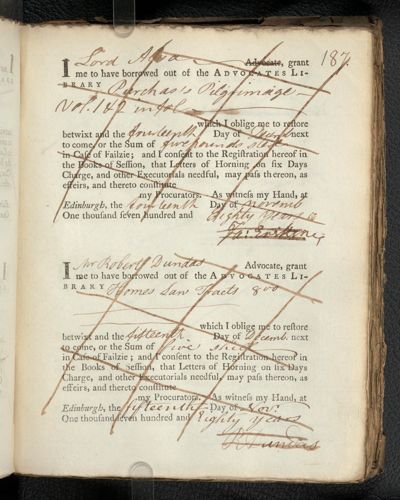 187.
Lord Alva Advocate, grant
I me to have borrowed out of the ADVOCATES LI-
BRARY Purchas's Pilgrimage —
Vol. 1 & 2 in fol —
which I oblige me to reſtore
betwixt and the fourteenth Day of next
to come, or the Sum of five pounds ster
in Caſe of Failzie; and I conſent to the Regiſtration hereof in
the Books of Seſſion, that Letters of Horning on ſix Days
Charge, and other Executorials needful, may paſs thereon, as
effeirs, and thereto conſtitute
my Procurators. As witneſs my Hand, at
Edinburgh, the fourteenth Day of Novemb
One thouſand ſeven hundred and Eighty Years
Ja: Erskine
Mr Robert Dundas Advocate, grant
I me to have borrowed out of the ADVOCATES LI-
BRARY Homes Law Tracts 8vo
which I oblige me to reſtore
betwixt and the fifteenth Day of Decemb. next
to come, or the Sum of five shill
in Caſe of Failzie; and I conſent to the Regiſtration hereof in
the Books of Seſſion, that Letters of Horning on ſix Days
Charge, and other Executorials needful, may paſs thereon, as
effeirs, and thereto conſtitute
my Procurators. As witneſs my Hand, at
Edinburgh, the fifteenth Day of Nov.
One thouſand ſeven hundred and Eighty Years
R Dundas